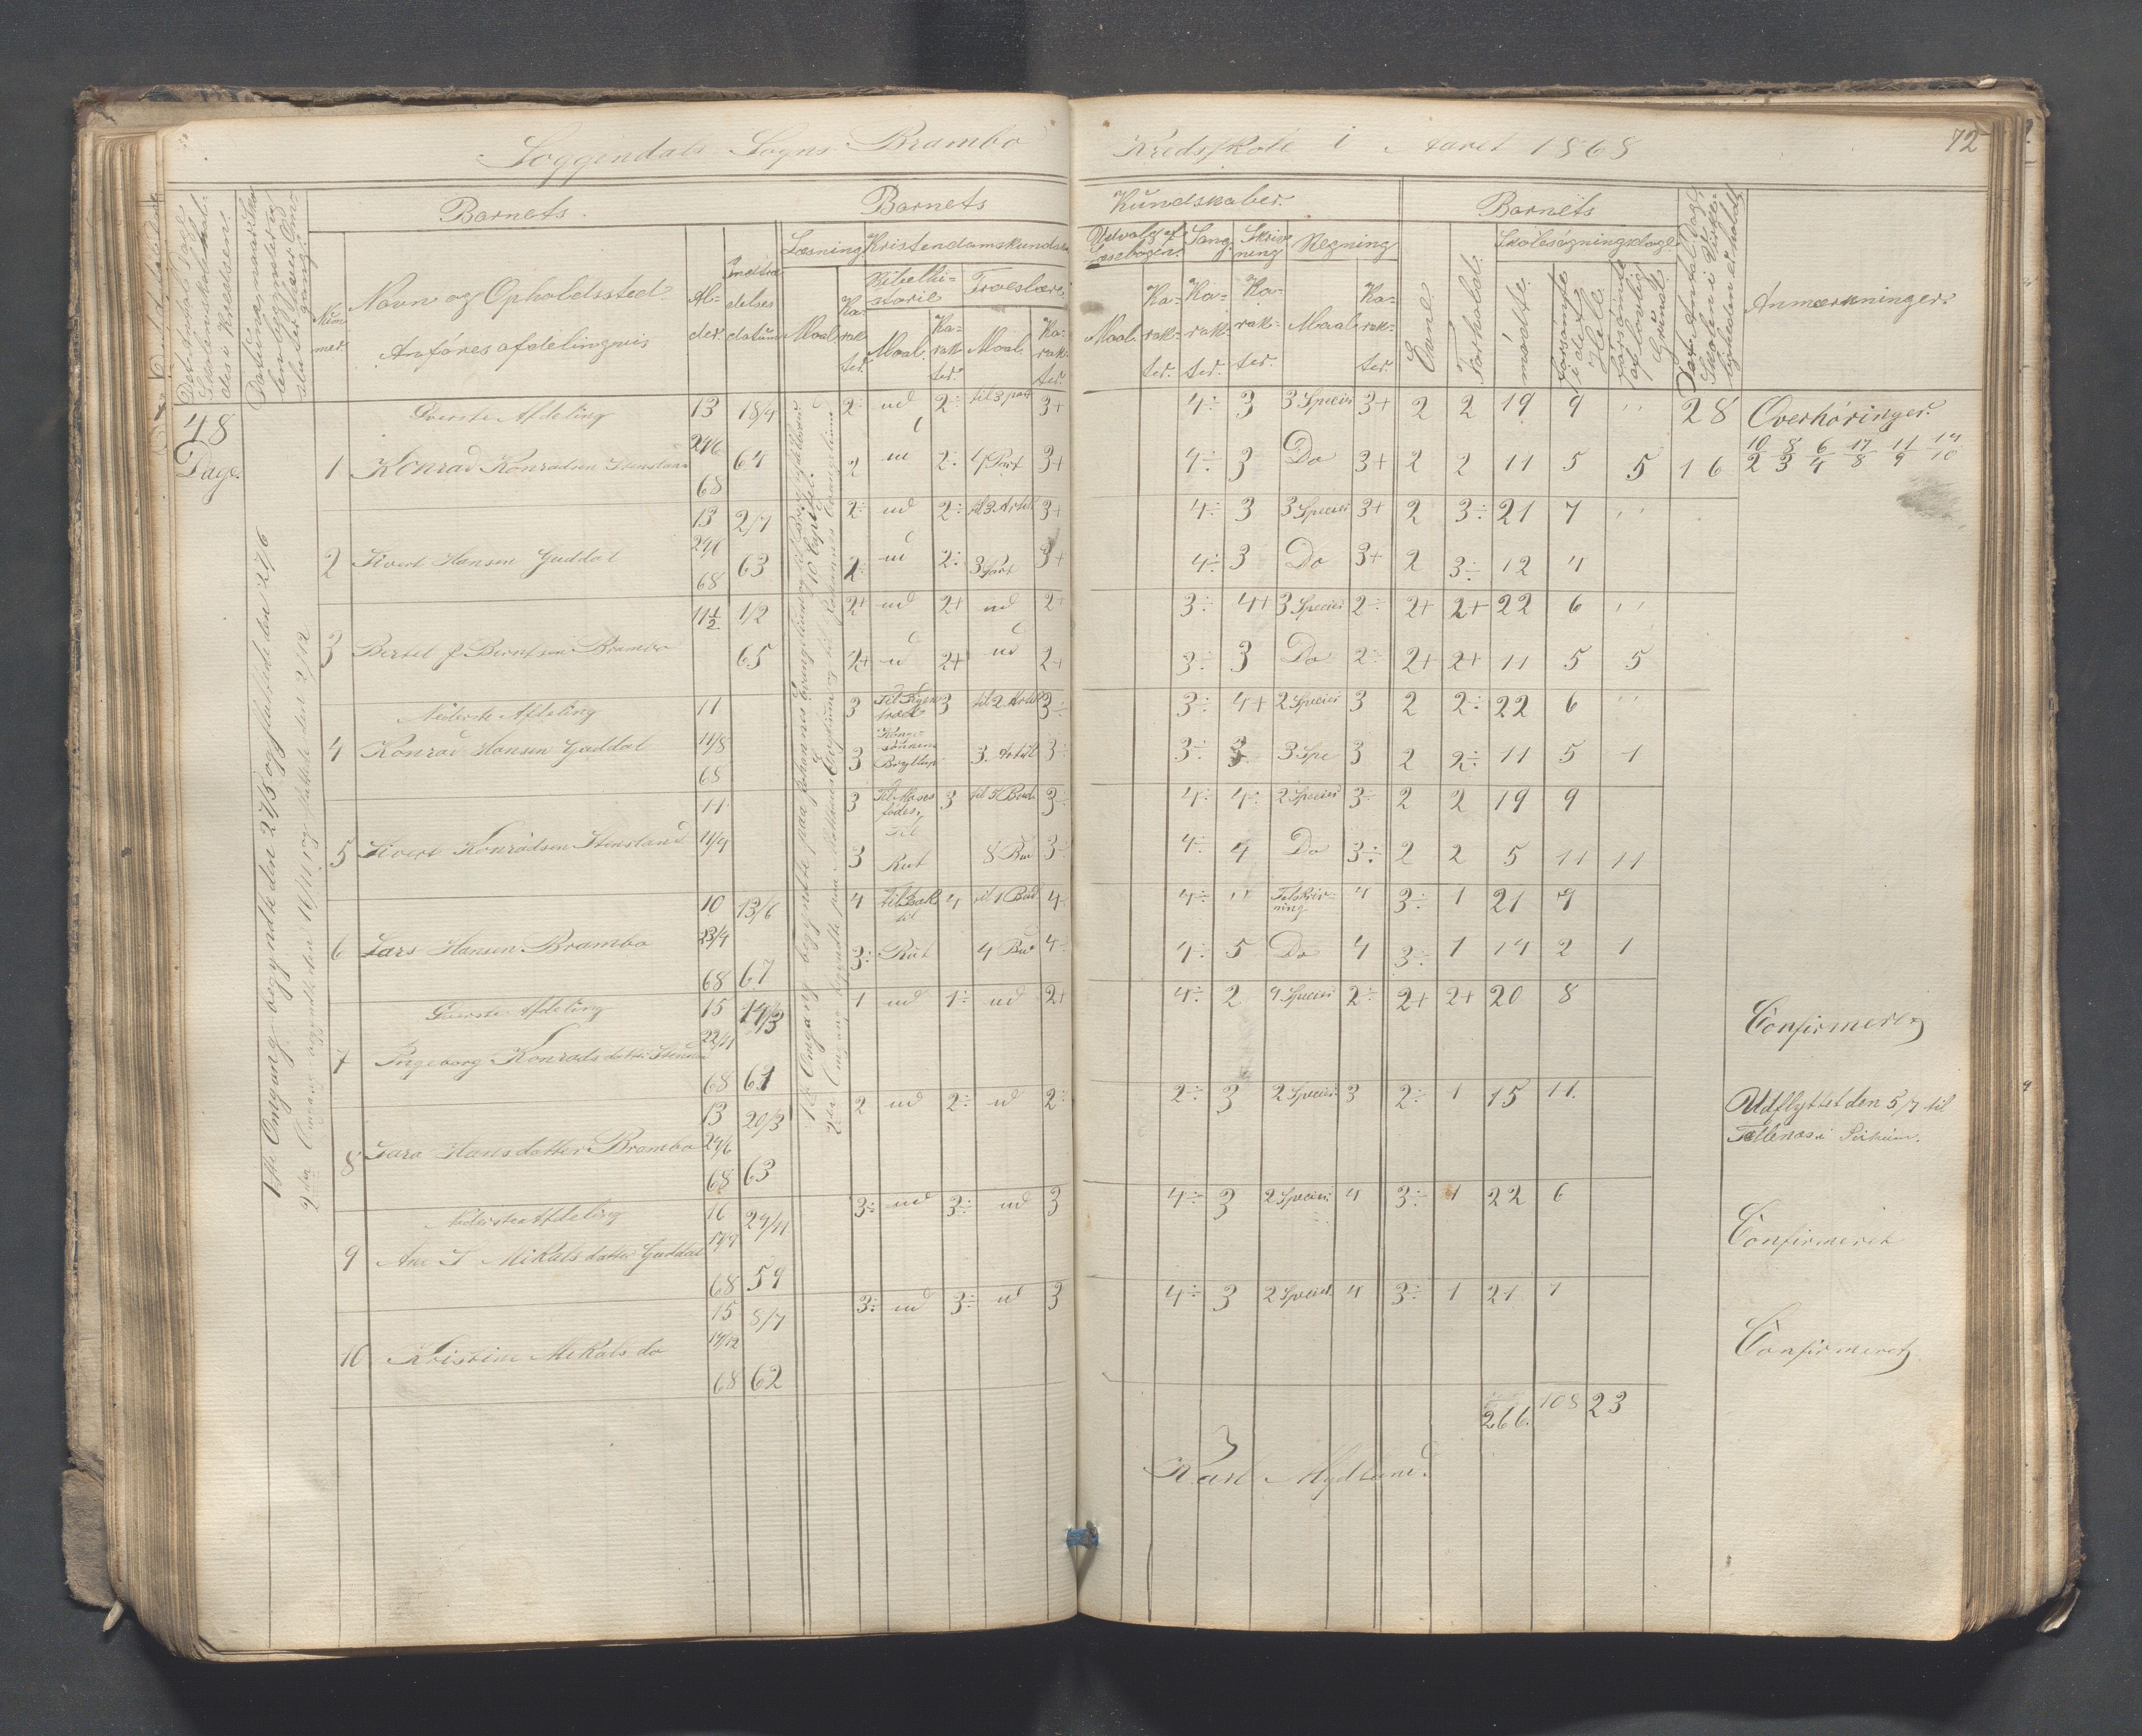 Soggendals Sogns Brambo Kredsskole i Aaret 1868
72
Barnets
Barnets
Kundskaber
Barnets
Det Antal Dage Skolen skal holdes i Kredsen.
Datum, naar Skolen
Num-
mer.
Navn og Opholdssted.
Anføres afdelingsvis
Al-
der.
Indtræ-
delses
datum
Læsning
Maal
Ka-
rak-
ter.
Kristendomskundskab
Bibelhi-
storie
Maal.
Ka-
rak-
ter.
Troeslære
Maal.
Ka-
rak-
ter.
Udvalg af
Læsebogen.
Maal.
Ka-
rak-
ter.
Sang
Ka-
rak-
ter.
Skriv-
ning
Ka-
rak-
ter.
Regning
Maal
Ka-
rak-
ter.
Evne
Forhold.
Skolesøgningsdage
mødte.
forsømte i det Hele.
forsømte af lovlig Grund.
Anmærkninger.
48
Dage.
1ste Omgang begyndte den 27/5 og sluttede den 27/6
2den Omgang begyndte den 16/11 og sluttede den 2/12
Øverste Afdeling 13 18/4 2÷ ud 2÷ til 3 part 3+ 4÷ 3 3 Species 3+ 2 2 19 9 " 28 Overhøringer.
1 Konrad Konradsen Stensland 24/6 68 64 2 ud 2÷ 4 Part 3+ 4÷ 3 Do 3+ 2 2 11 5 5 16 10/2 8/3 6/4 17/8 11/9 14/10
13 2/7 2÷ ud 2÷ til 3 Artik 3+ 4÷ 3 3 Species 3+ 2 3÷ 21 7 "
2 Sivert Hansen Guddal 24/6 68 63 2÷ ud 2÷ 3 Part 3+ 4÷ 3 Do 3+ 2 3÷ 12 4
11½ 1/2 2+ ud 2+ ud 2+ 3÷ 4+ 3 Species 2÷ 2+ 2+ 22 6 "
3 Bertel J Berntsen Brambo 65 2+ ud 2+ ud 2+ 3÷ 3 Do 2÷ 2+ 2+ 11 5 5
Nederste Afdeling 11 3 3 til 2 Artik 3÷ 3÷ 4+ 2 Species 3 2 2÷ 22 6 "
4 Konrad Hansen Guddal 14/8 68 3 Konge-
sønnens
Bryllup 3. Artikl 3÷ 3÷ 3 3 Spe 3 2 2÷ 11 5 1
11 3 Til Moses
fødes. 3 til 5 Bud 3÷ 4÷ 4÷ 2 Species 3÷ 2 2 19 9
5 Sivert Konradsen Stensland 11/9 3 Til
Rut 8 Bud 3÷ 4÷ 4 Do 3÷ 2 2 5 11 11
10 13/6 4 til Isak 4 til 1 Bud 4÷ 4÷ " Talskriv-
ning 4 3÷ 1 21 9
6 Lars Hansen Brambo 23/4 68 67 3÷ til
Rut 4 Bud 4÷ 4÷ 5 Do 4 3÷ 1 14 2 1
Øverste Afdeling 15 14/3 1 ud 1÷ ud 2+ 4÷ 2 4 Species 2÷ 2+ 2+ 20 8 Confirmeret
7 Ingeborg Konradsdatter Stensland 22/11 68 61
13 20/3 2 ud 2÷ ud 2÷ 2÷ 3 2 Species 3 2÷ 1 15 11. Udflyttet den 5/7 til
8 Sara Hansdatter Brambo 24/6 68 63
Nederste Afdeling 16 24/11 3÷ ud 3÷ ud 3 4÷ 3 2 Species 4 3÷ 1 22 6 Confirmeret
9 Ane S Mikalsdatter Guddal 68 59
15 8/7 3÷ ud 3÷ ud 3 4÷ 3 2 Species 4 3÷ 1 21 7 Confirmeret
10 Kristine Mikals do 14/12 68 62
266. 108 23
Karl Mydland.